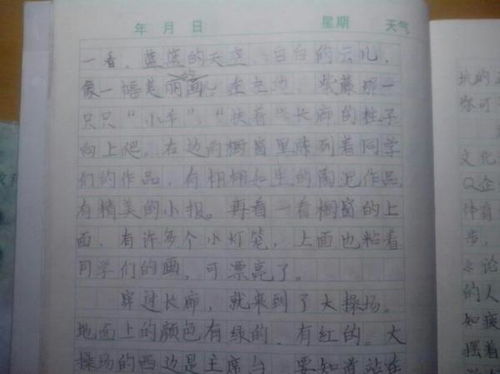 年 月 日 星期 天气
一看，蓝蓝的天空，白白的云儿，
像一幅美丽画，走左边，紫藤那一
只只“小车”，“扶着”长廊的柱子
向上爬，右边的橱窗里陈列着同学
们的作品，有栩栩如生的陶泥作品，
有精美的小报。再看一看橱窗的上
面，有许多个小灯笼，上面也粘着
同学们的画，可漂亮了。
穿过长廊，就来到了大操场。
地面上的颜色有绿的，有红的。大
操场的西边是主席台，要知道站在
文化
Q企
体育
击论
的人
知疲
摇着